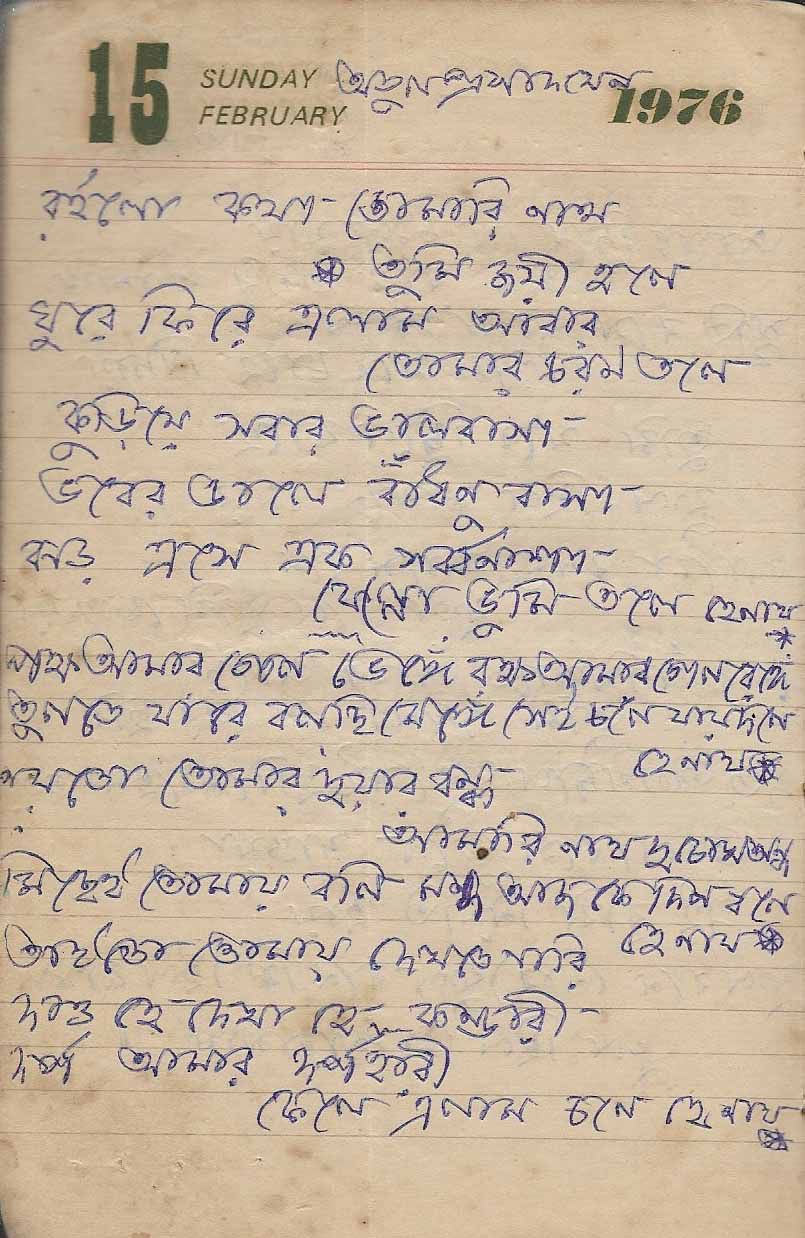 15 SUNDAY FEBRUARY 1976
অতুলপ্রসাদ সেন
রইলো কথা তোমারি নাথ
তুমি জয়ী হলে
ঘুরে ফিরে এলাম আবার
তোমার চরণ তলে
কুড়িয়ে সবার ভালবাসা
ভবের ডালে বাঁধনু বাসা
ঝড় এসে এক সর্ব্বনাশা
ফেল্লো ভূমি তলে হে নাথ
আমার ভেঙ্গে বক্ষ আমার রেঙ্গে
তুলতে যারে বলছি মেঙ্গে সেই চলে যায় দলে
হে নাথ
নয়তো তোমার দুয়ার বন্ধ
আমারি নাথ দুচোখ অন্ধ
মিছেই তোমায় বলি মন্দ আজকে দিব বলে
হে নাথ
তাইতো তোমায় দেখতে নারি
দাও হে দেখা হে কান্ডারী
দর্প আমার দর্পহারী
ফেলে এলাম চলে হে নাথ